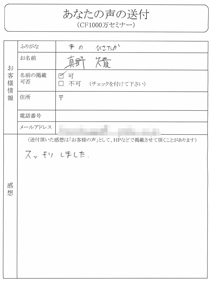 あなたの声の送付
(CF1000万セミナー)
お客様情報
ふりがな
まの ひさたか
お名前
真野
名前の掲載可否
☑ 可
□ 不可 (チェックを付けて下さい)
住所
〒
電話番号
メールアドレス
(送付頂いた感想は「お客様の声」として、HPなどで掲載させて頂くことがあります)
感想
スッキリしました.